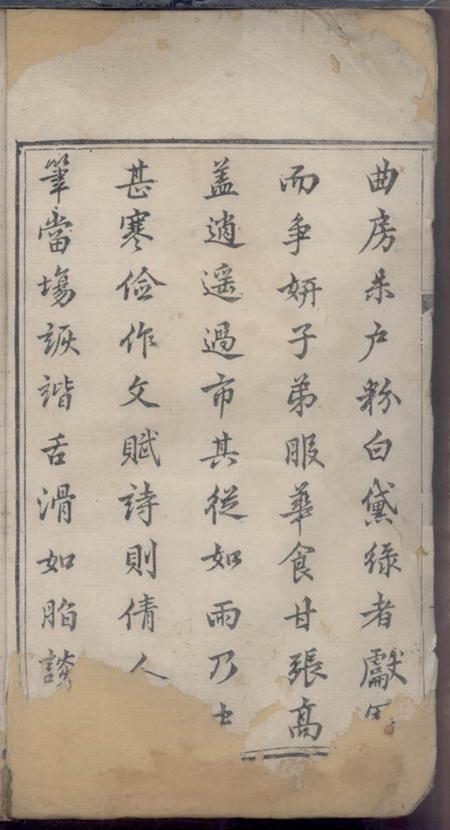 曲房朱户粉白黛绿者獻
而争妍子弟服華食甘張髙
盖逍遥過市其從如雨乃
甚寒儉作文賦詩則倩人
筆當場詼諧舌滑如脂談